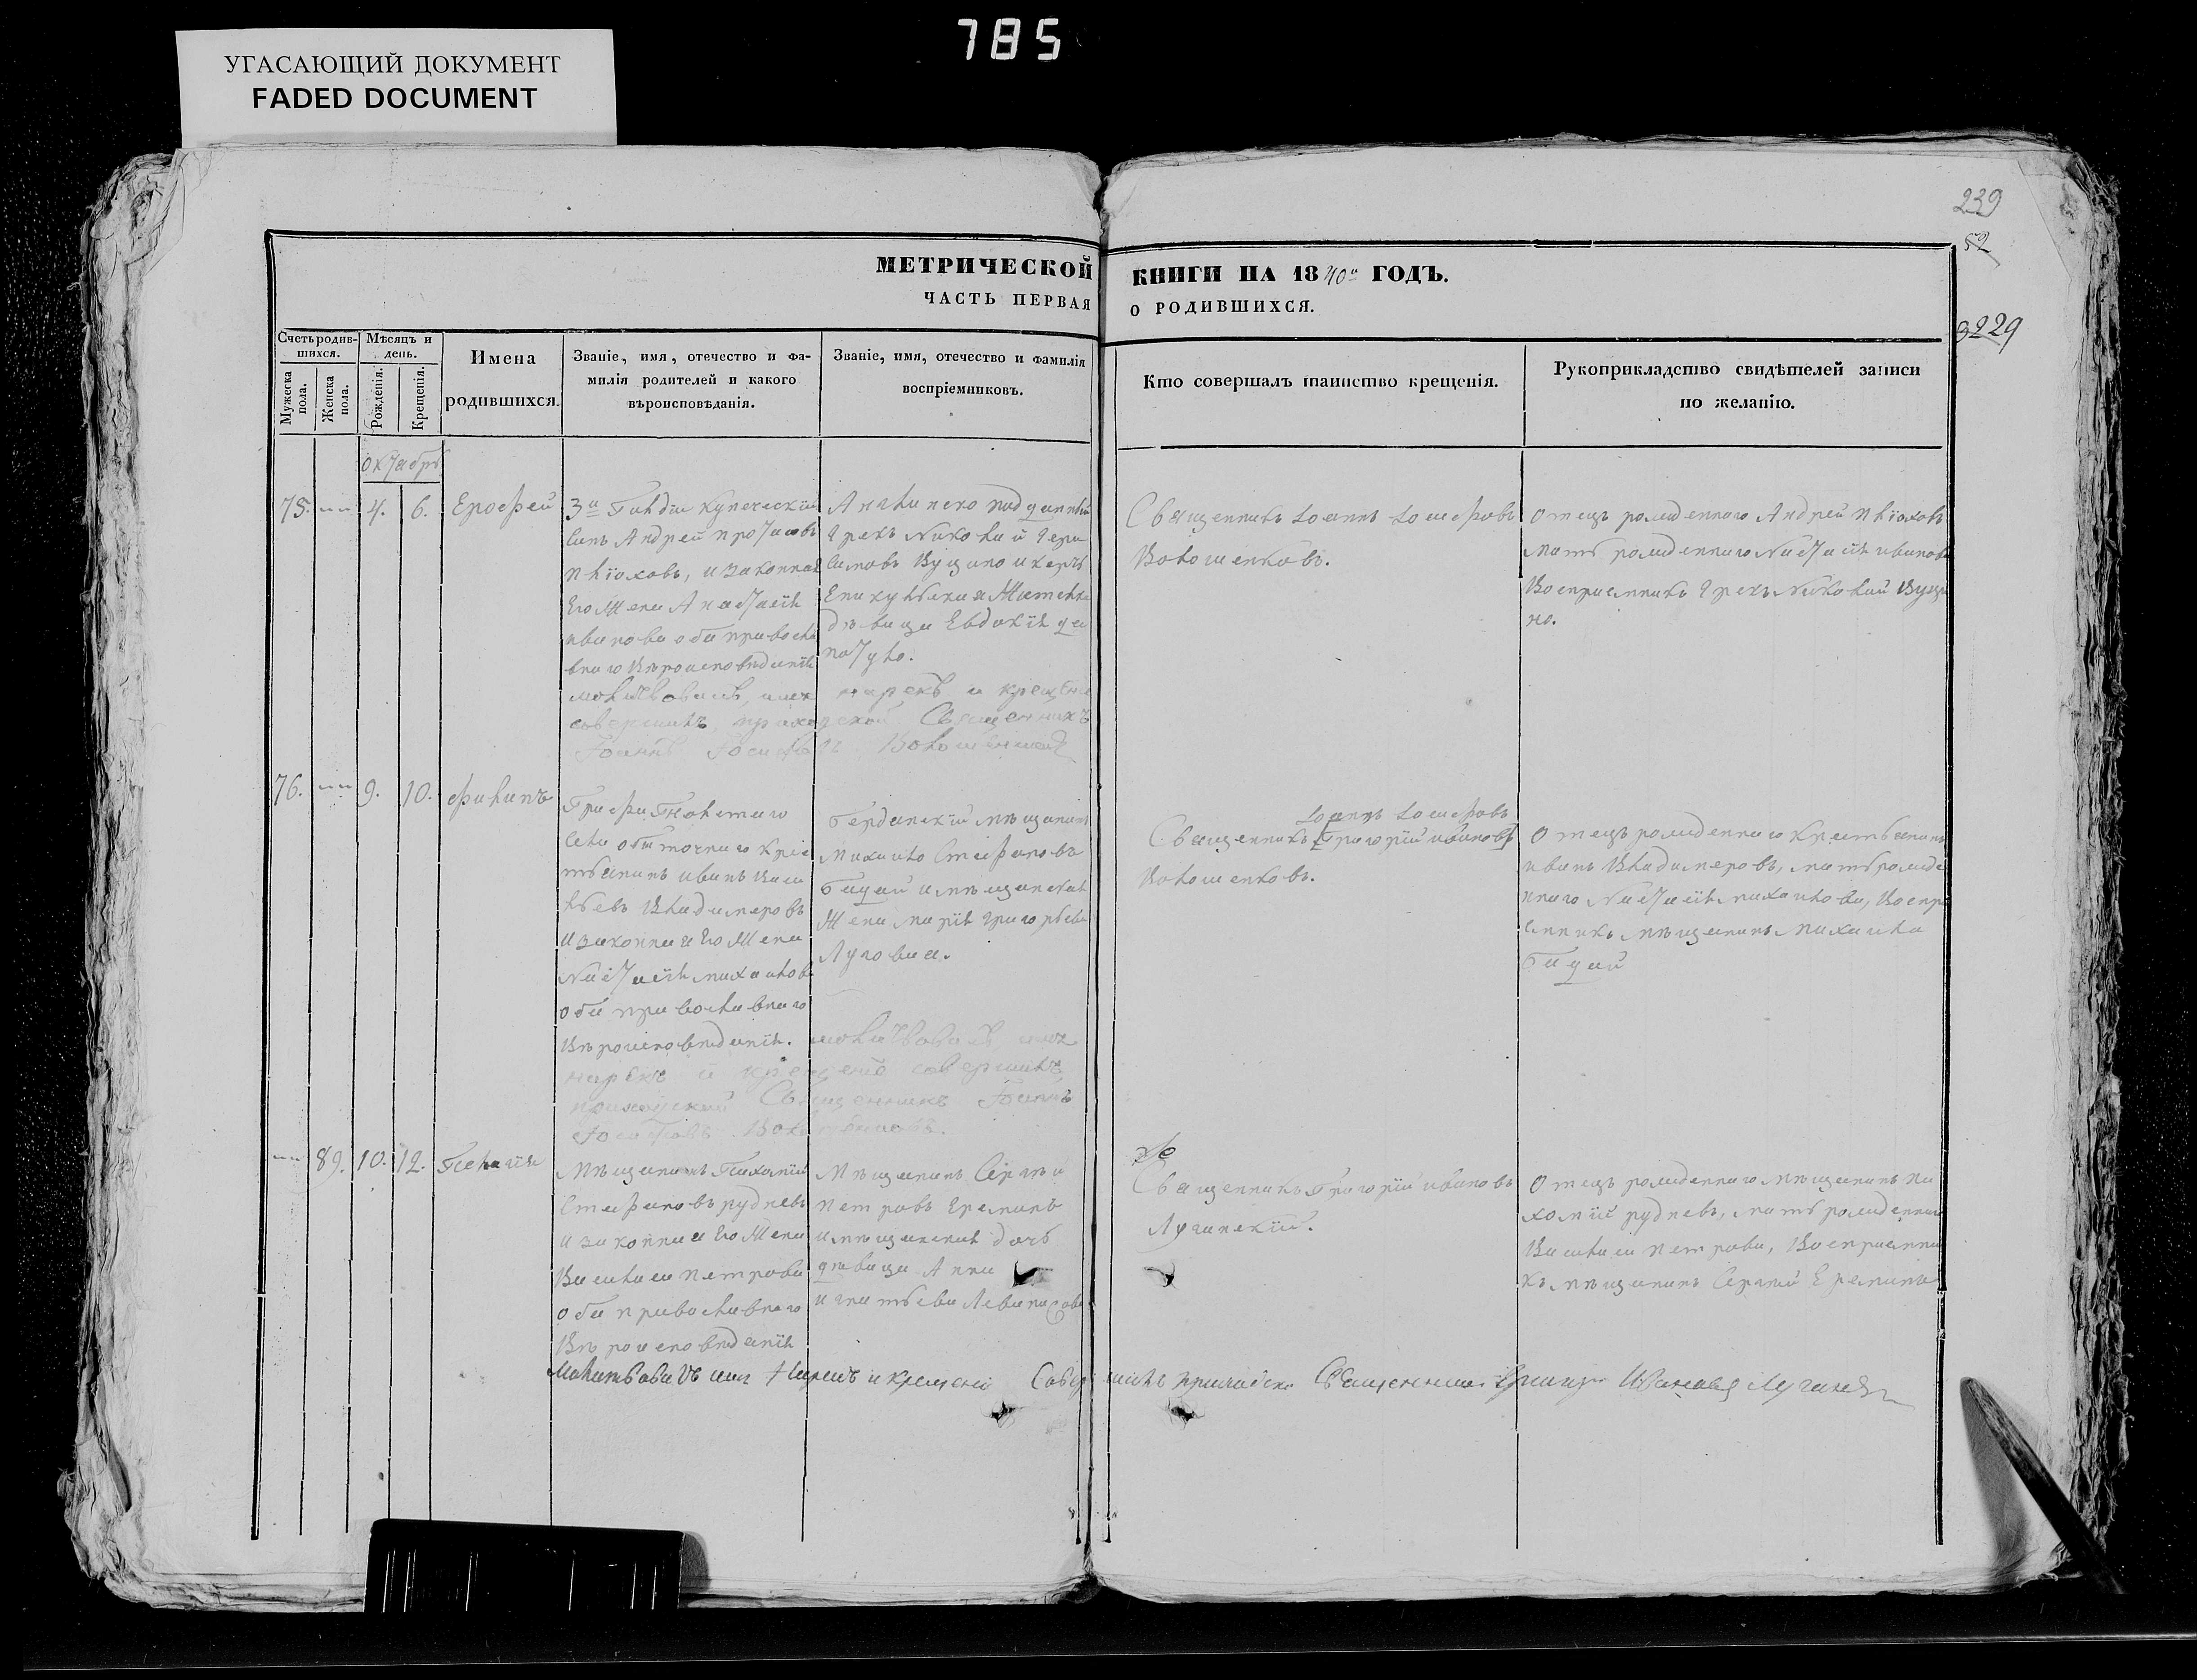 785
УГАСАЮЩИЙ ДОКУМЕНТ
FADED DOCUMENT
239
52
229
МЕТРИЧЕСКОЙ КНИГИ НА 1840й ГОДЪ.
ЧАСТЬ ПЕРВАЯ О РОДИВШИХСЯ.
Счетъ родившихся.
Мужеска пола.
Женска пола.
Мѣсяцъ и день.
Рожденія.
Крещенія.
Имена
родившихся.
Званіе, имя, отечество и фа-
милія родителей и какого
вѣроисповѣданія.
Званіе, имя, отечество и фамилія
воспріемниковъ.
Кто совершалъ таинство крещенія.
Рукоприкладство свидѣтелей записи
по желанію.
октябрь
75. 4. 6. Ерофей
3й Гилдіи купеческій
сынъ Андрей
и законная
его жена Анастасія
иванова оба православ
внаго вѣроисповѣданія
грекъ Николай
дѣвица Евдокія
молитвовалъ, имя нарекъ и крещеніе
совершилъ приходской Священникъ
Іоаннъ Іосифовъ Волошенковъ
Священникъ Іоаннъ Іосифовъ
Волошенковъ.
отецъ рожденнаго Андрей
мать рожденнаго Настасія иванова
Воспріемникъ грекъ Николай Вущи
но.
76. 9. 10. филипъ
села крес
тьянинъ иванъ Васи
льевъ Владимеровъ
и законная его жена
Настасія михайлова
оба православнаго
вѣроисповѣданія.
бердянскій мѣщанинъ
михайло Стефановъ
и мѣщанская
жена марія григорьева
Луговая.
молитвовалъ имя
нарекъ и крещеніе совершилъ
приходской Священникъ Іоаннъ
Іосифовъ Волошенковъ.
Іоаннъ Іосифовъ
Священникъ [григорій ивановъ]
Волошенковъ.
отецъ рожденнаго крестьянинъ
иванъ Владимеровъ, мать рожде
ннаго Настасія михайлова, Воспрі
емникъ мѣщанинъ михайло
89. 10. 12. Пелагія
Мѣщанинъ Пахомій
Стефановъ рудневъ
и законная его жена
Василиса петрова
оба православнаго
вѣроисповѣданія
Мѣщанинъ Сергѣй
петровъ Ереминъ
и мѣщанская дочь
дѣвица Анна
игнатьева
Священникъ Григорій ивановъ
Луганскій.
отецъ рожденнаго мѣщанинъ па
хомій рудневъ, мать рожденнаго
Василиса петрова, Воспріемни
къ мѣщанинъ Сергѣй Ереминъ
Молитвовалъ имя нарекъ и крещеніе Совершилъ приходской Священникъ Григорій Ивановъ Луганскій